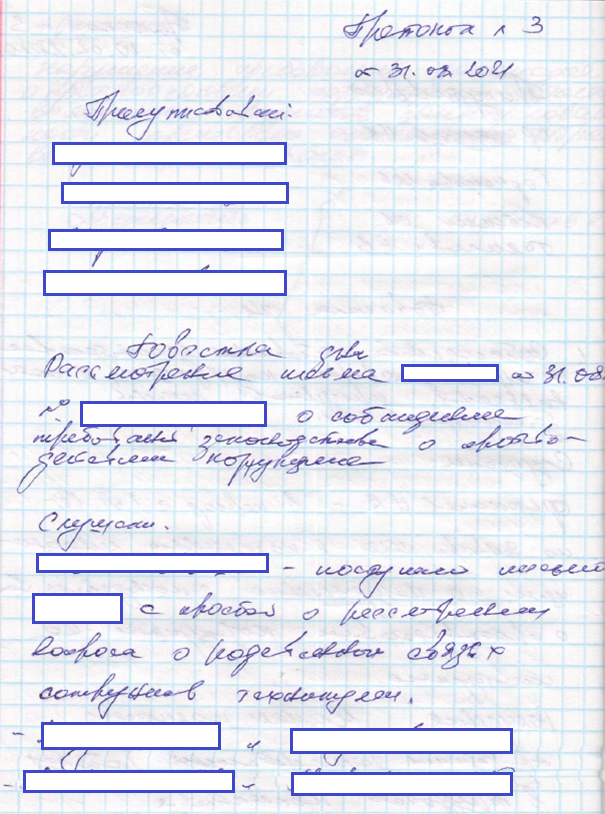 Протокол № 3
от 31.08.2021
Присутствовали:
Повестка дня
Рассмотрение письма от 31.08.
№ о соблюдении
требований законодательства о противо-
действии коррупции
Слушали.
- поступило письмо
с просьбой о рассмотрении
вопроса о родственных связях
сотрудников техникума.